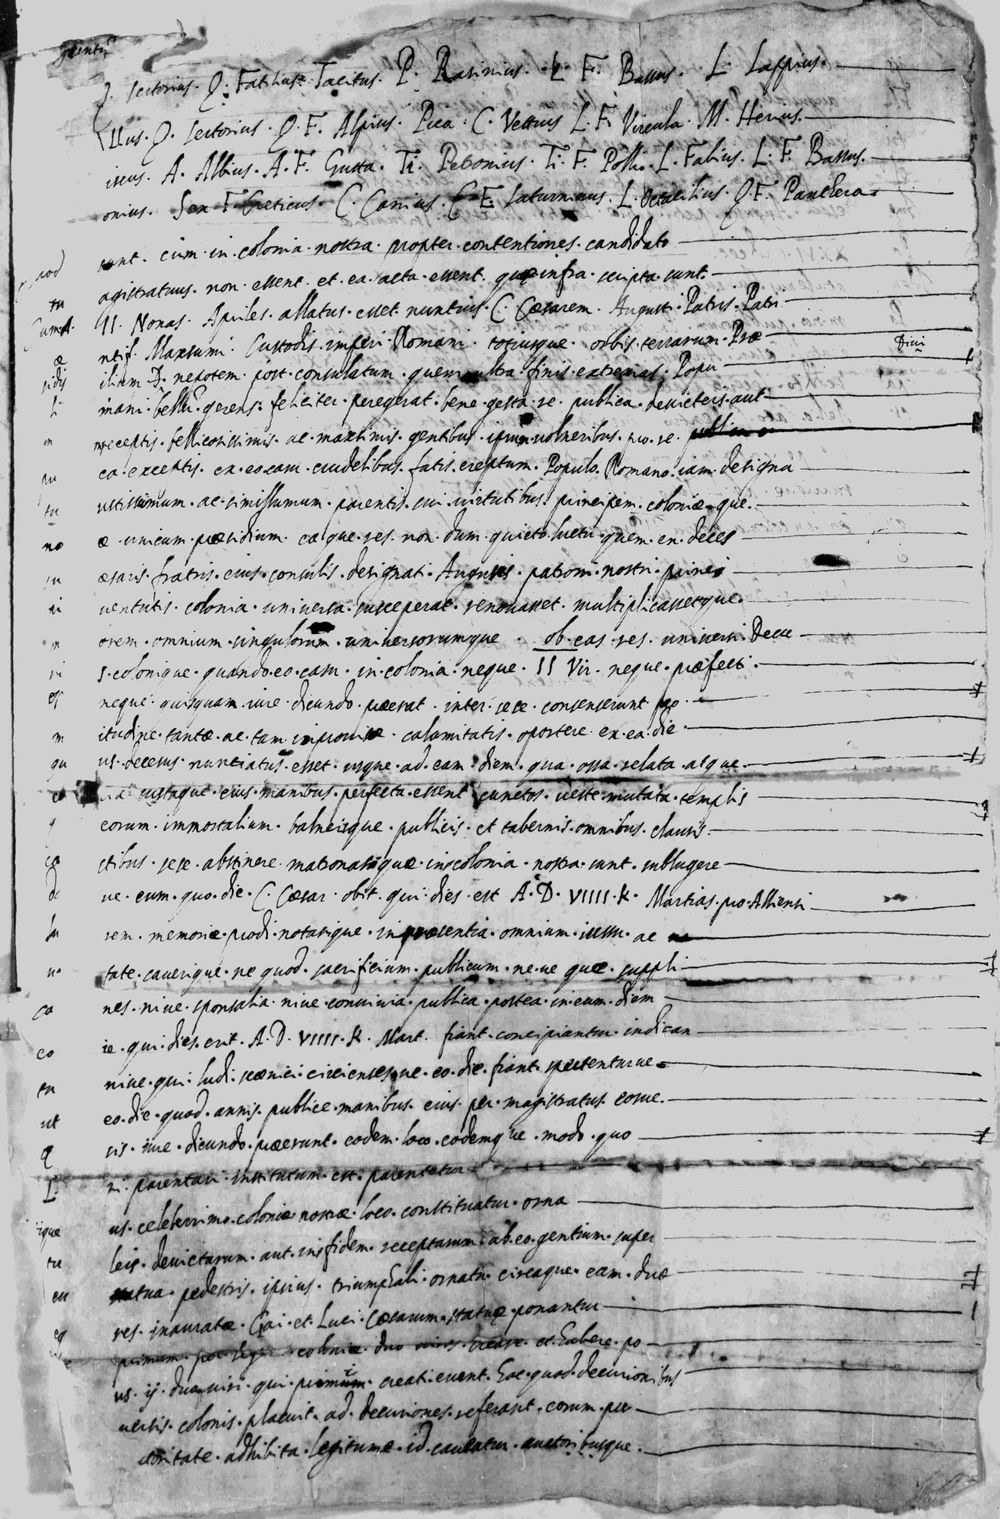 Q. Sertorius. Q. Fatilius. Tacitus. P. Rasinius. L. F. Bassus. L. Lappius.
llus. Q. Sertorius. Q. F. Alpius. Pica. C. Vettius L. F. Virgula. M. Herius.
icus. A. Albius. A. F. Gutta. Ti. Petronius. Ti. F. Pollio. L. Fabius. L. F. Bassus.
onius. Sex F. Creticus. C. Canius. C. F. Saturninus. L. Octacilius. Q. F. Panthera.
sunt. cum. in. colonia. nostra. propter. contentiones. candidato
agistratuus. non. essent. et. ea. acta. essent. quae infra. scripta. sunt.
II. Nonas. Apriles. allatus. esset nuntius. C. Cæsarem. Augusti. Patris. Patri
ntif. Maxsumi. Custodis. imperi. Romani. totiusque. orbis. terrarum. Præ
ilium. D. nepotem. post. consulatum. quem ultra. finis. extremas. Popu divi
mani. bellu. gerens. feliciter. peregerat. bene. gesta. re. publica. devicteis. aut
receptis. bellicosissimis. ac. maximis. gentibus. ipsum. volneribus. pro. re.
ca. exceptis. ex. eo. cam. crudelibus. fatis. ereptum. Populo. Romano. iam. designa
ustissumum. ac. simillumum. parentis. sui. virtutibus. principem. coloniæ. que.
æ. unicum. præsidium. eaque. res. non. dum. quieto. luctu. quem. ex. deces
æsaris. fratris. eius. consulis. designati. Auguris. patroni. nostri. princi
ventutis. colonia. universa. susceperat. renovasset. multiplicassetque.
orem. omnium. singulorum. universorumque. ob. eas. res. universi. Decu
s. colonique. quando. eo. cam. in. colonia. neque. II Vir. neque. præfecti.
neque. quisquam. iure. dicundo. præerat. inter. sese. consenserunt. pro.
itudine. tantæ. ac. tam. improvisæ. calamitatis. oportere. ex. ea. die
us. decessus. nuntiatus. esset. usque. ad. eam. diem. qua. ossa. relata. atque.
iustaque. eius. manibus. perfecta. essent cunctos. veste. mutata. templis
eorum. immortalium. balneisque. publicis. et. tabernis. omnibus. clausis
ctibus. sese. abstinere. matronasque. in colonia. nostra. sunt. sublugere
ue. eum. quo. die. C. Cæsar. obit. qui. dies. est. A. D. VIIII. K. Martias. pro. Alliensi
rem. memoriæ. prodi. notarique. in præsentia. omnium. iussu. ac
tate. caverique. ne quod. sacrificium. publicum. ne. ve quæ. suppli
nes. nive. sponsalia. nive. convivia. publica. postea. in. eum. diem
ie. qui. dies. erit. A. D. VIIII. K. Mart. fiant. concipiantur. indican
nive. qui. ludi. scænici. circiensesve. eo. die. fiant. spectenturve.
eo. die. quod. annis. publice. manibus. eius. per. magistratus. eosve.
sis. iure. dicundo. præerunt. eodem. loco. eodemque. modo. quo
ri. parentari. institutum. est. parentetur
us. celeberrimo. coloniæ. nostræ. loco. constituatur. orna
leis. devictarum. aut. in. fidem. receptarum. ab. eo. gentium. super
statua. pedestris. ipsius. triumphali. ornatu. circaque. eam. duæ
res. inauratæ. Gai. et. Luci. Cæsarum. statuæ. ponantur
primum. per. legem. coloniæ. duo viros. creare. et. habere. po
us. ij. duo viri. qui. primum. creati. erunt. hoc. quod. decurionibus
versis. colonis. placuit. ad. decuriones. referant. eorum. pu
ctoritate. adhibita. legitume. id. caveatur. auctoribusque.